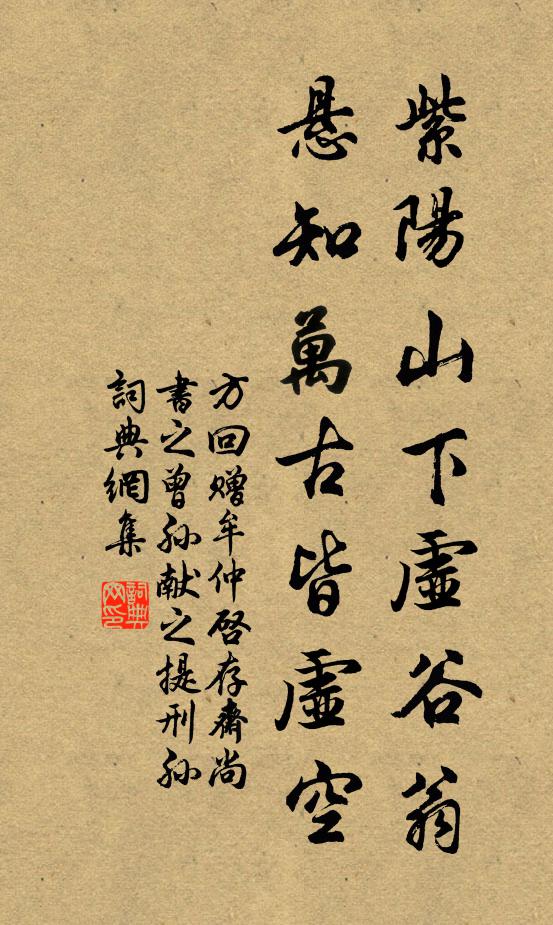 紫陽山下虛谷翁
悬知萬古皆虛空
方回赠牟仲启存齋尚
書之曾孙献之提刑孙
詞典網集
詞典網印